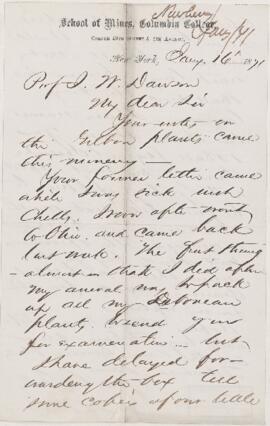 Newberry
Jany/71
School of Mines, Columbia College,
Corner 49th Street & 4th Avenue.
New York, Jany. 16th 1871
Prof J. W. Dawson
My dear Sir
Your notes on
the Gilboa plants came
this morning —
Your former letter came
while I was sick with
Chills. Soon after I went
to Ohio and came back
last week. The first thing
almost that I did after
my arrival was to pack
up all my Devonian
plants to send you
for examination — but
I have delayed for-
warding the box till
some copies of our little